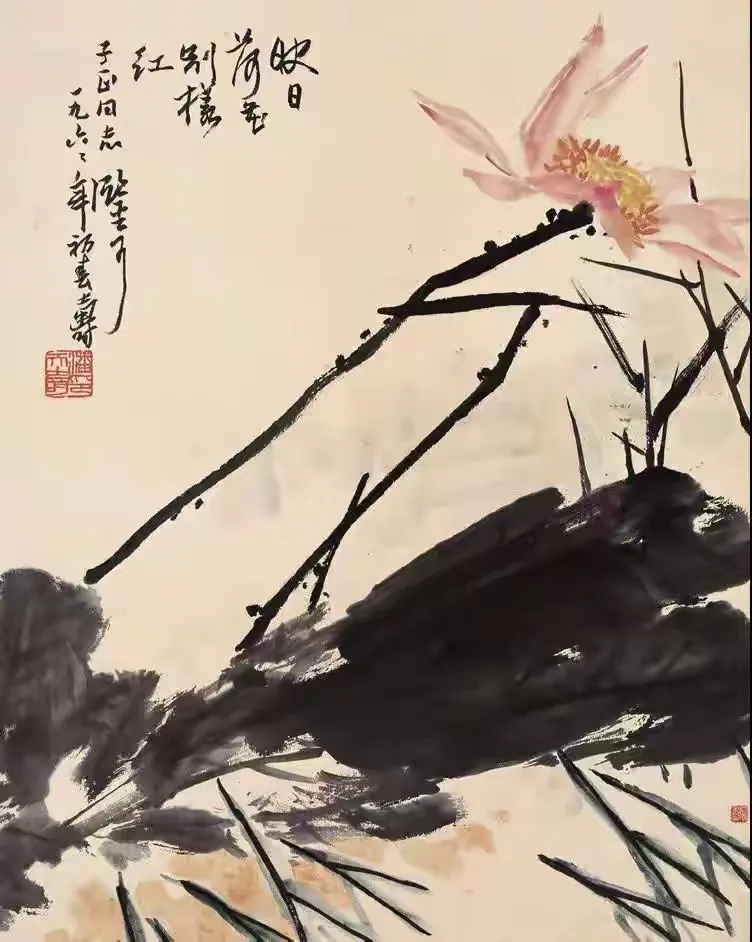 映日
荷花
别樣
红
子正同志
一九六二年初春壽